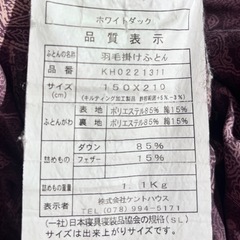 ホワイトダック
品質表示
ふとんの名称 羽毛掛けふとん
品番 KH0221311
サイズ(cm) 150×210
(キルティング加工製品 許容範囲+5%−3%)
ふとんがわ 表地 ポリエステル85% 綿15%
裏地 ポリエステル85% 綿15%
詰めもの ダウン 85%
フェザー 15%
詰めもの重量 1.1Kg
表示者 株式会社ケントハウス
TEL (078) 994-5171
(一社)日本寝具寝装品協会の規格(SL)
サイズは出来上がりサイズです